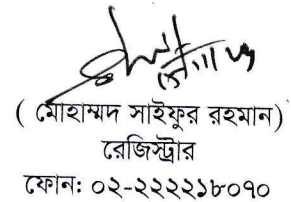 ( মোহাম্মদ সাইফুর রহমান)
রেজিস্ট্রার
ফোন: ০২-২২২২১৮০৭০